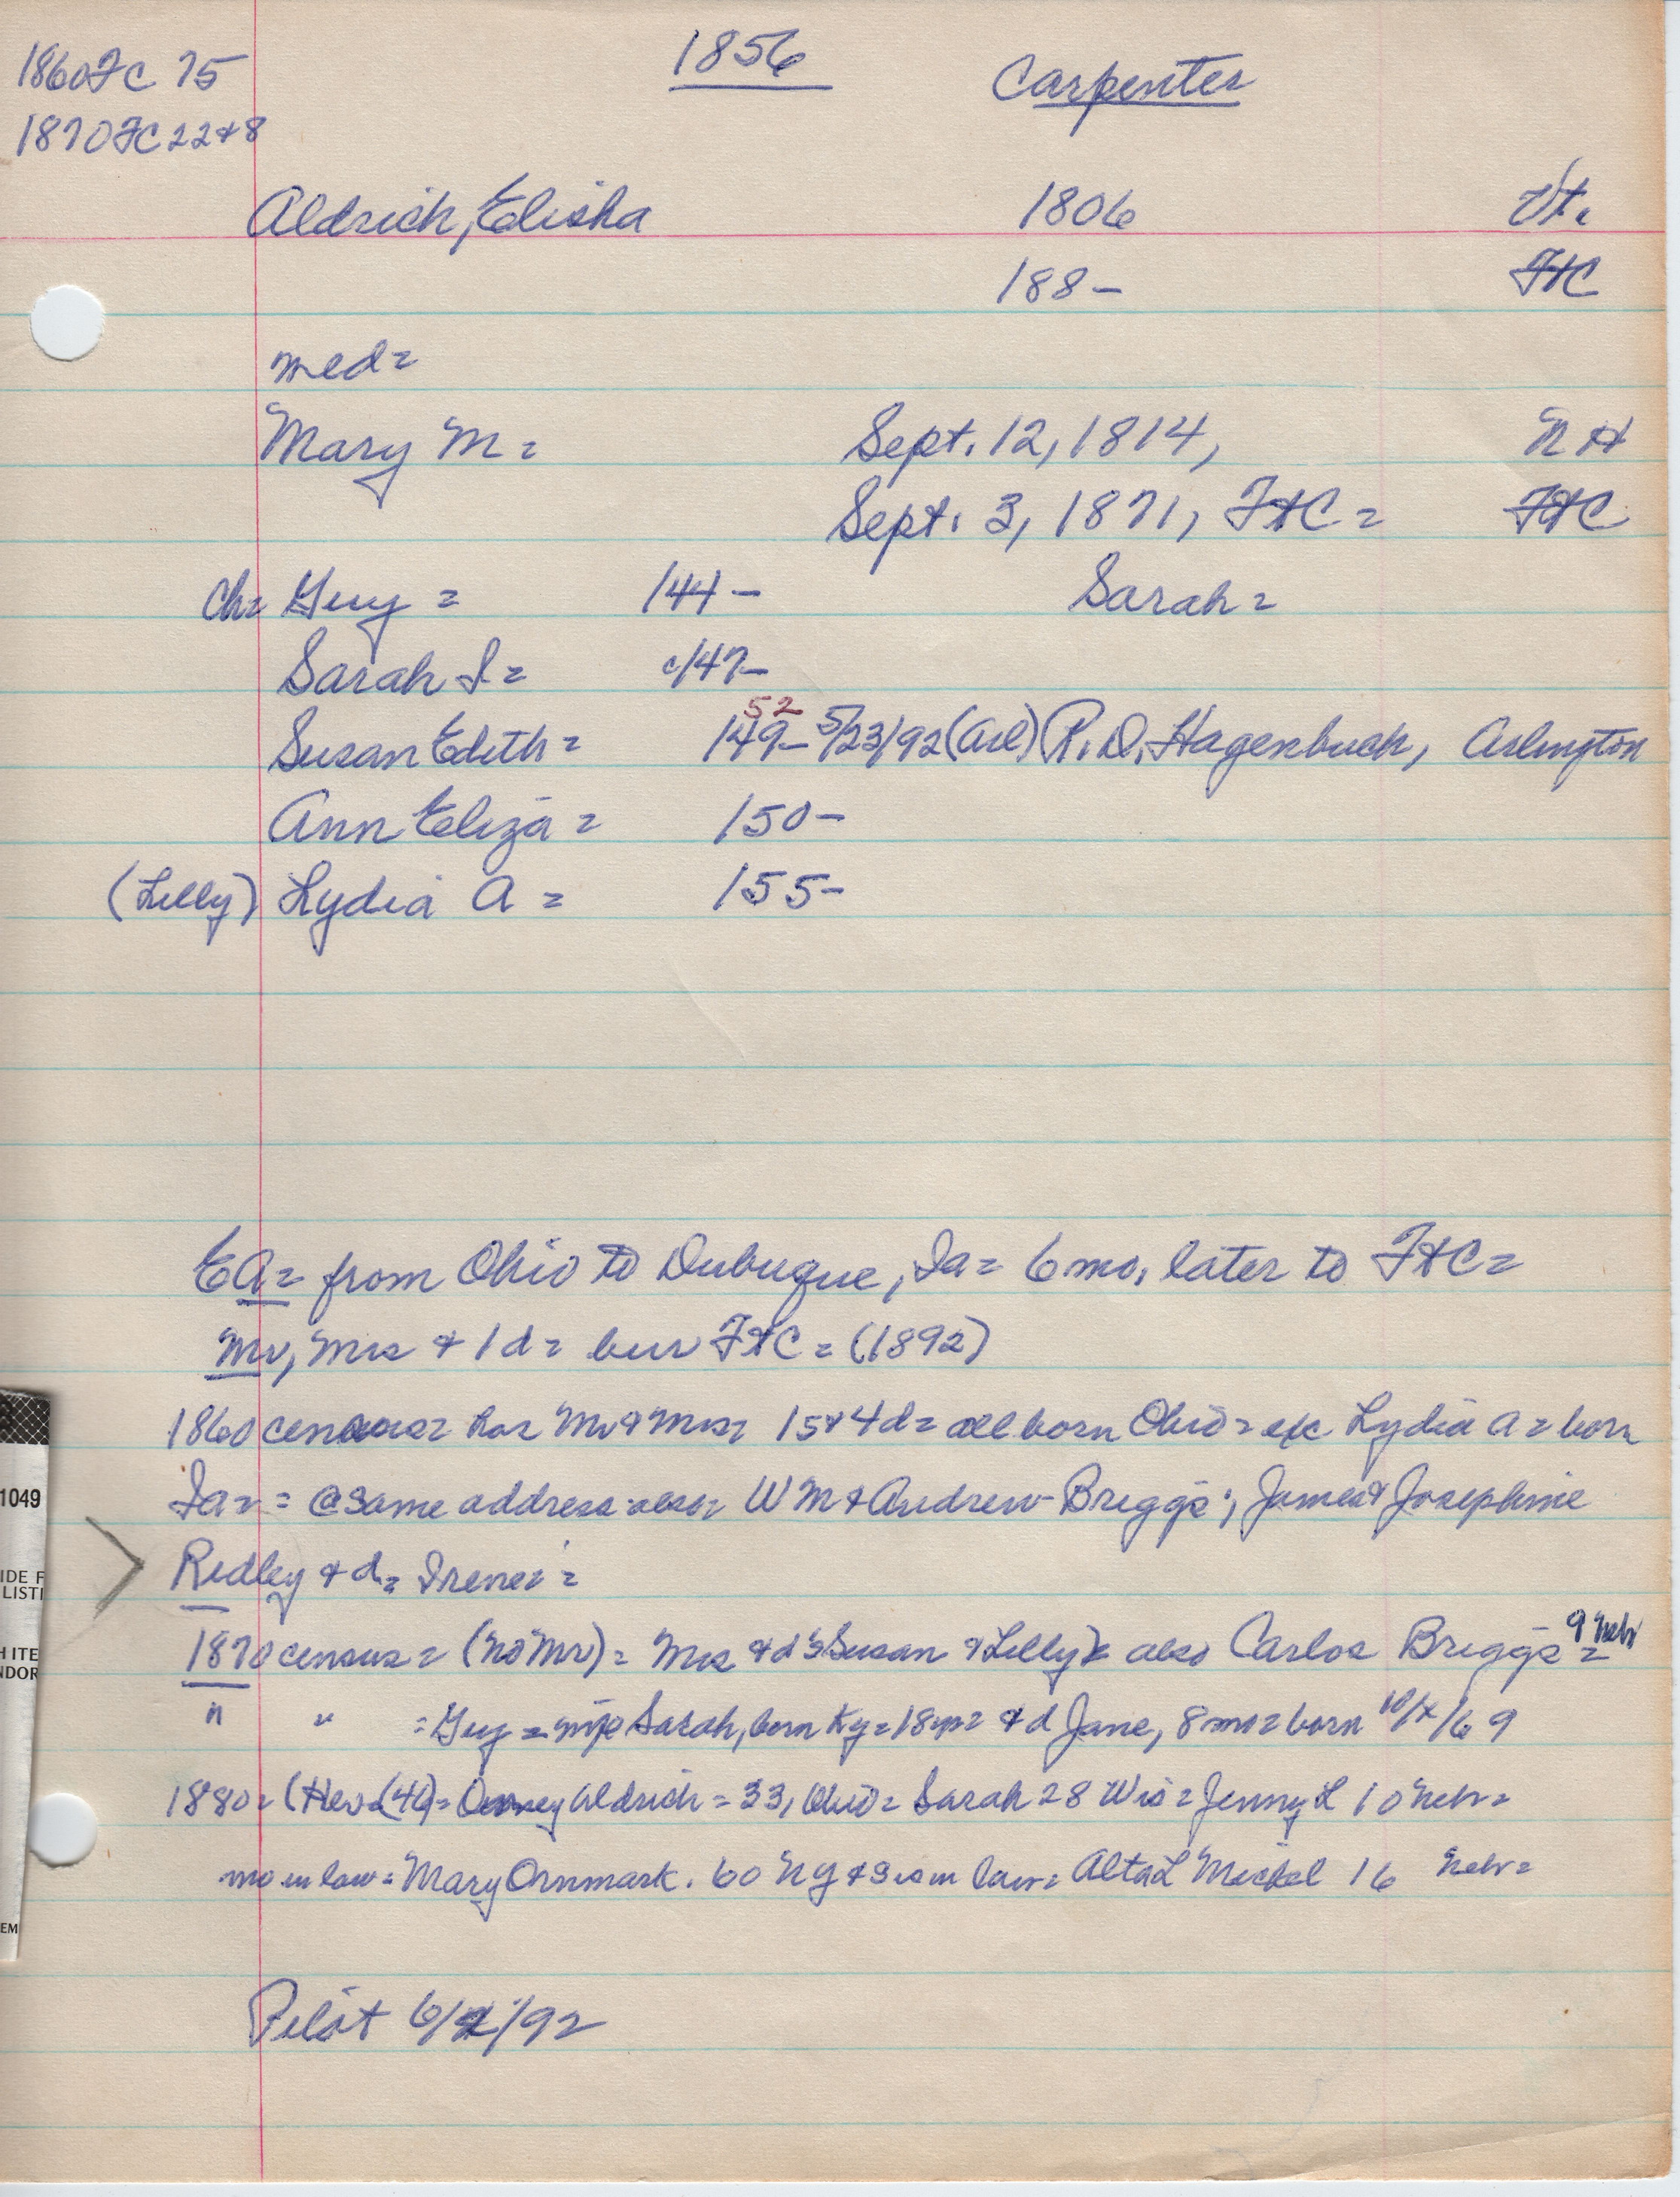 1860 FC 75
1856
Carpenter
1870 FC 22+8
Aldrich, Elisha 1806 Vt.
188– FtC
med=
Mary M= Sept. 12, 1814, NH
Sept. 3, 1871, FtC= FtC
Ch= Guy = 144– Sarah=
Sarah I= c/47–
52
Susan Edith= 149– 5/23/92 (Arl) R. D. Hagenbuch, Arlington
Ann Eliza= 150–
(Lilly) Lydia A= 155–
EA= from Ohio to Dubuque, Ia= 6 mo, later to FtC=
Mr, Mrs + 1 d= bur FtC= (1892)
1860 census= has Mr + Mrs= 1 s + 4 d= all born Ohio= exc Lydia A= born
Ia= = @ same address also= Wm + Andrew Briggs; James + Josephine
Ridley + d= Irene=
1870 census= (no Mr)= Mrs + d's Susan + Lilly= also Carlos Briggs = 9 Nebr
" " = Guy = Sarah, born Ky= 18 yr= + d Jane, 8 mo= born 10/x/69
1880= (46)= Aldrich= 33, Ohio= Sarah 28 Wis= Jenny L 10 Nebr=
mo in law= Mary Ornmark. 60 NY + sis in law= Alta L 16 Nebr=
Pilot 6/ /92
1049
IDE F
LISTI
H ITE
NDOR
EM